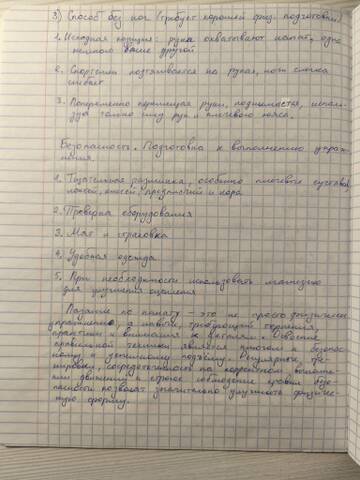 3) Способ без ног (требует хорошей физ. подготовки)
1. Исходная позиция: руки охватывают канат, одна
немного выше другой
2. Спортсмен подтягивается на руках, ноги слегка
сгибает
3. Попеременно перемещая руки, поднимается, исполь-
зуя только силу рук и плечевого пояса.
Безопасность. Подготовка к выполнению упраж-
нения.
1. Тщательная разминка, особенно плечевых суставов,
локтей, кистей, предплечий и кора
2. Проверка оборудования
3. Мат и страховка
4. Удобная одежда
5. При необходимости использовать магнезию
для улучшения сцепления
Лазание по канату - это не просто физическое
упражнение, а навык, требующий терпения,
практики и внимания к деталям. Освоение
правильной техники является ключом к безопас-
ному и успешному подъёму. Регулярные тре-
нировки, сосредоточенность на корректном выполне-
нии движений и строгое соблюдение правил безо-
пасности позволят значительно улучшить физичес-
кую форму.